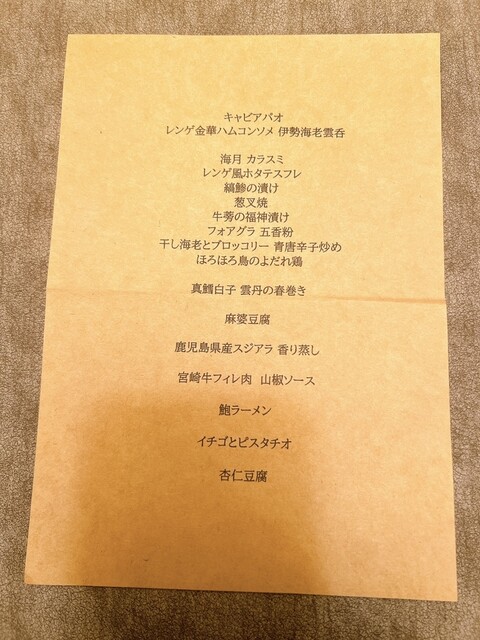 キャビアバオ
レンゲ金華ハムコンソメ 伊勢海老雲呑
海月 カラスミ
レンゲ風ホタテスフレ
縞鯵の漬け
葱叉焼
牛蒡の福神漬け
フォアグラ 五香粉
干し海老とブロッコリー 青唐辛子炒め
ほろほろ鳥のよだれ鶏
真鱈白子 雲丹の春巻き
麻婆豆腐
鹿児島県産スジアラ 香り蒸し
宮崎牛フィレ肉 山椒ソース
鮑ラーメン
イチゴとピスタチオ
杏仁豆腐